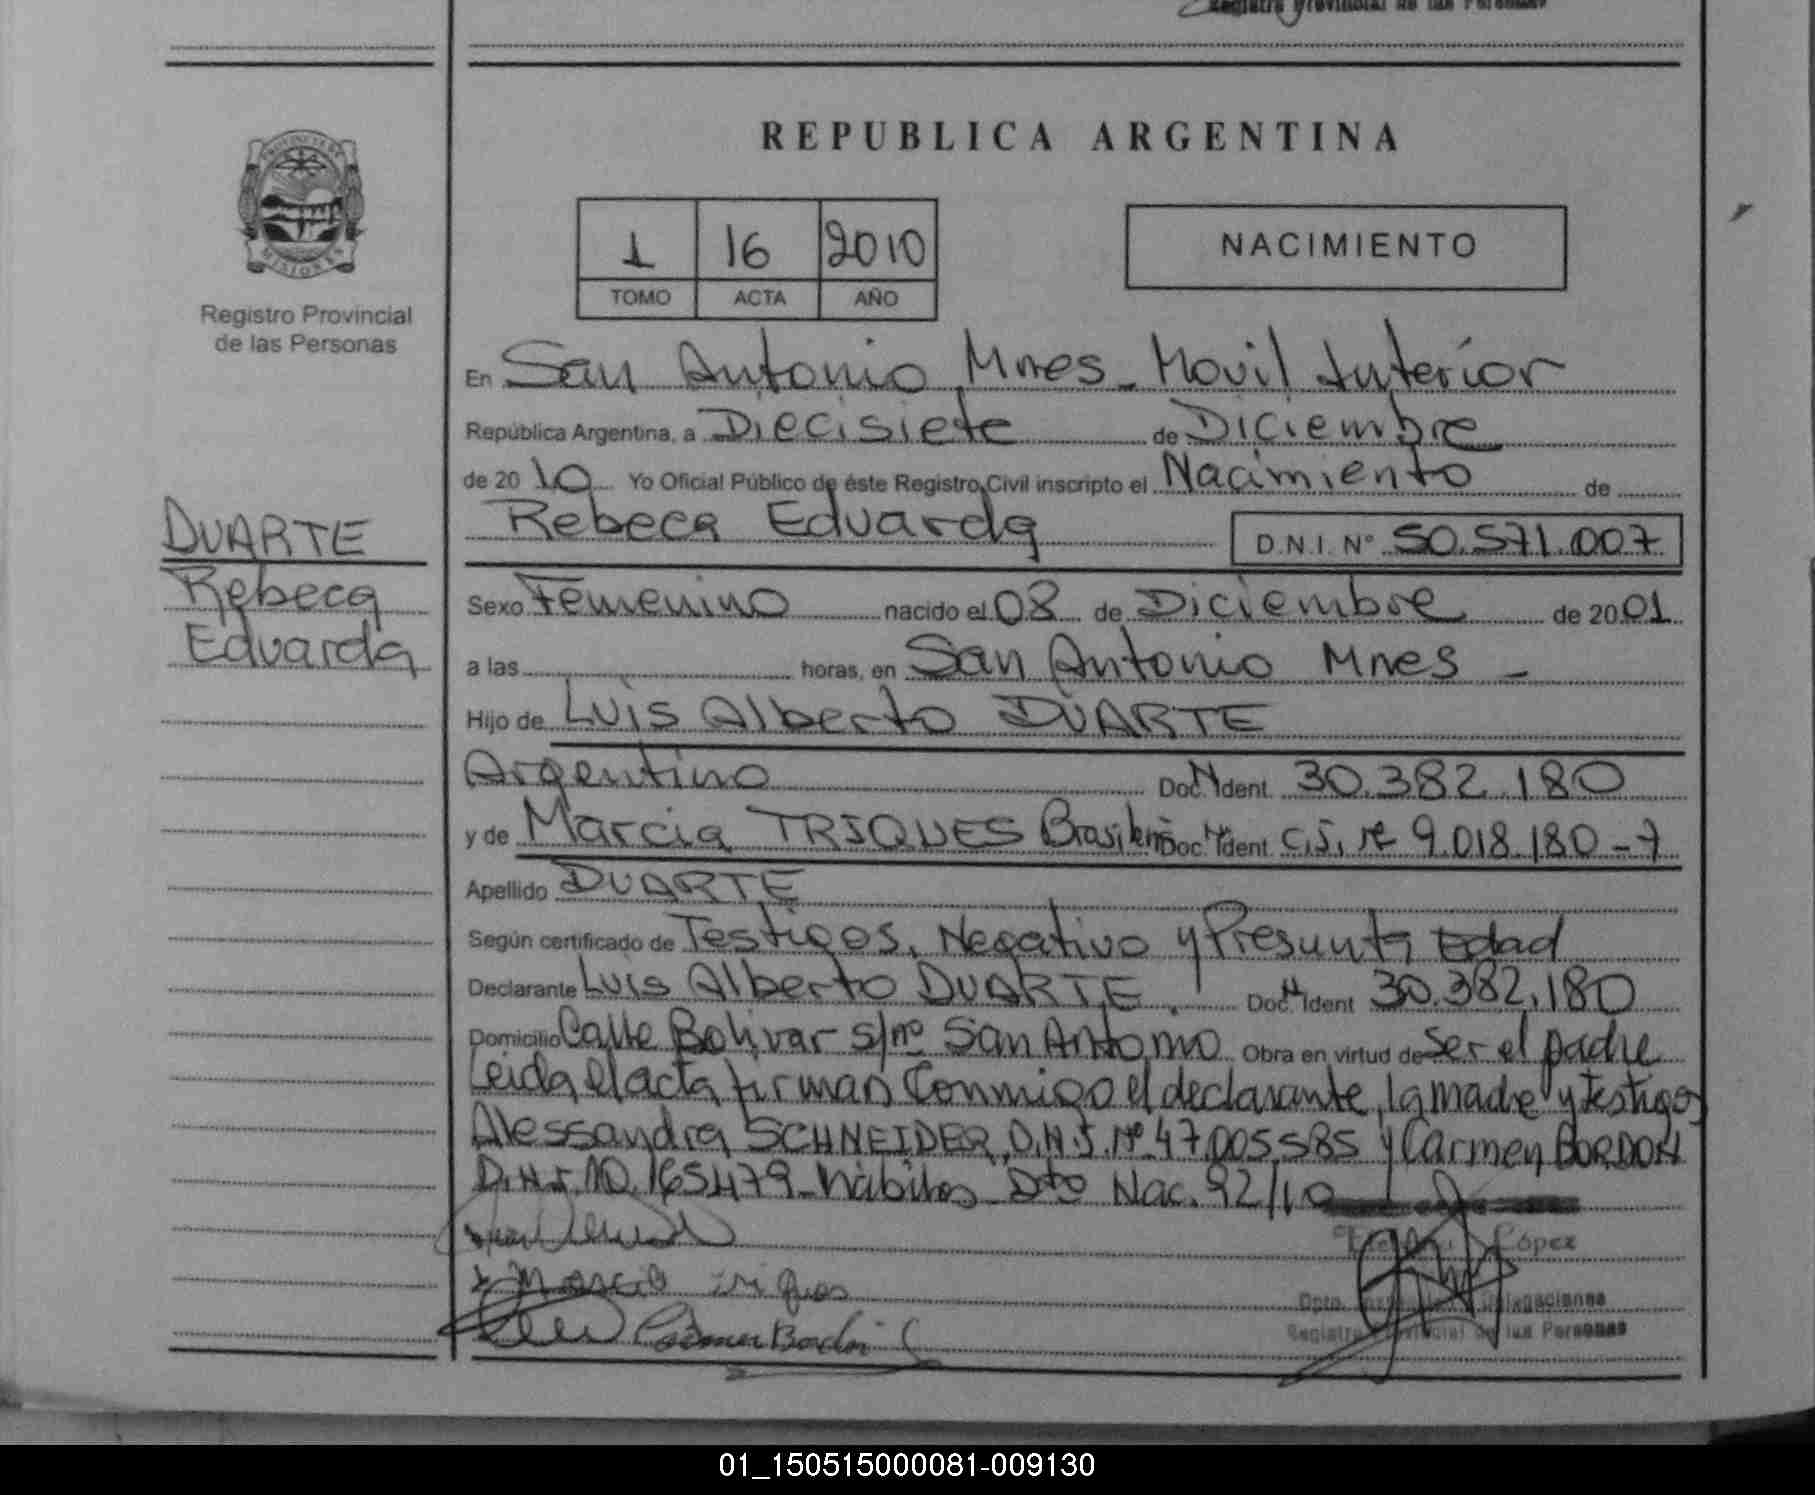 Registro Provincial de las Personas
REPUBLICA ARGENTINA
PROVINCIA DE
MISIONES
Registro Provincial
de las Personas
1 16 2010
TOMO ACTA AÑO
NACIMIENTO
En San Antonio Mnes - Movil Interior
República Argentina, a Diecisiete de Diciembre
de 2010 Yo Oficial Público de éste Registro Civil inscripto el Nacimiento de
Rebeca Eduarda D.N.I. Nº 50.571.007
DUARTE
Rebeca
Eduarda
Sexo Femenino nacido el 08 de Diciembre de 2001
a las horas, en San Antonio Mnes -
Hijo de Luis Alberto DUARTE
Argentino Doc. N Ident 30.382.180
y de Marcia TRIQUES Brasileña Doc. N Ident C.I. Nº 9.018.180-7
Apellido DUARTE
Según certificado de Testigos, Negativo y Presunta Edad
Declarante Luis Alberto DUARTE. Doc. N Ident 30.382.180
Domicilio Calle Bolivar s/nº San Antonio Obra en virtud de Ser el padre
Leida el acta firman Conmigo el declarante, la madre y testigos
Alessandra SCHNEIDER, D.N.I. Nº 47.005.585 y Carmen BORDON
D.N.I. Nº 165479 - hábiles - Dto Nac. 92/10
López
Marcia Triques
Dpto. Delegaciones
Registro Provincial de las Personas
Carmen Bordon
01_150515000081-009130